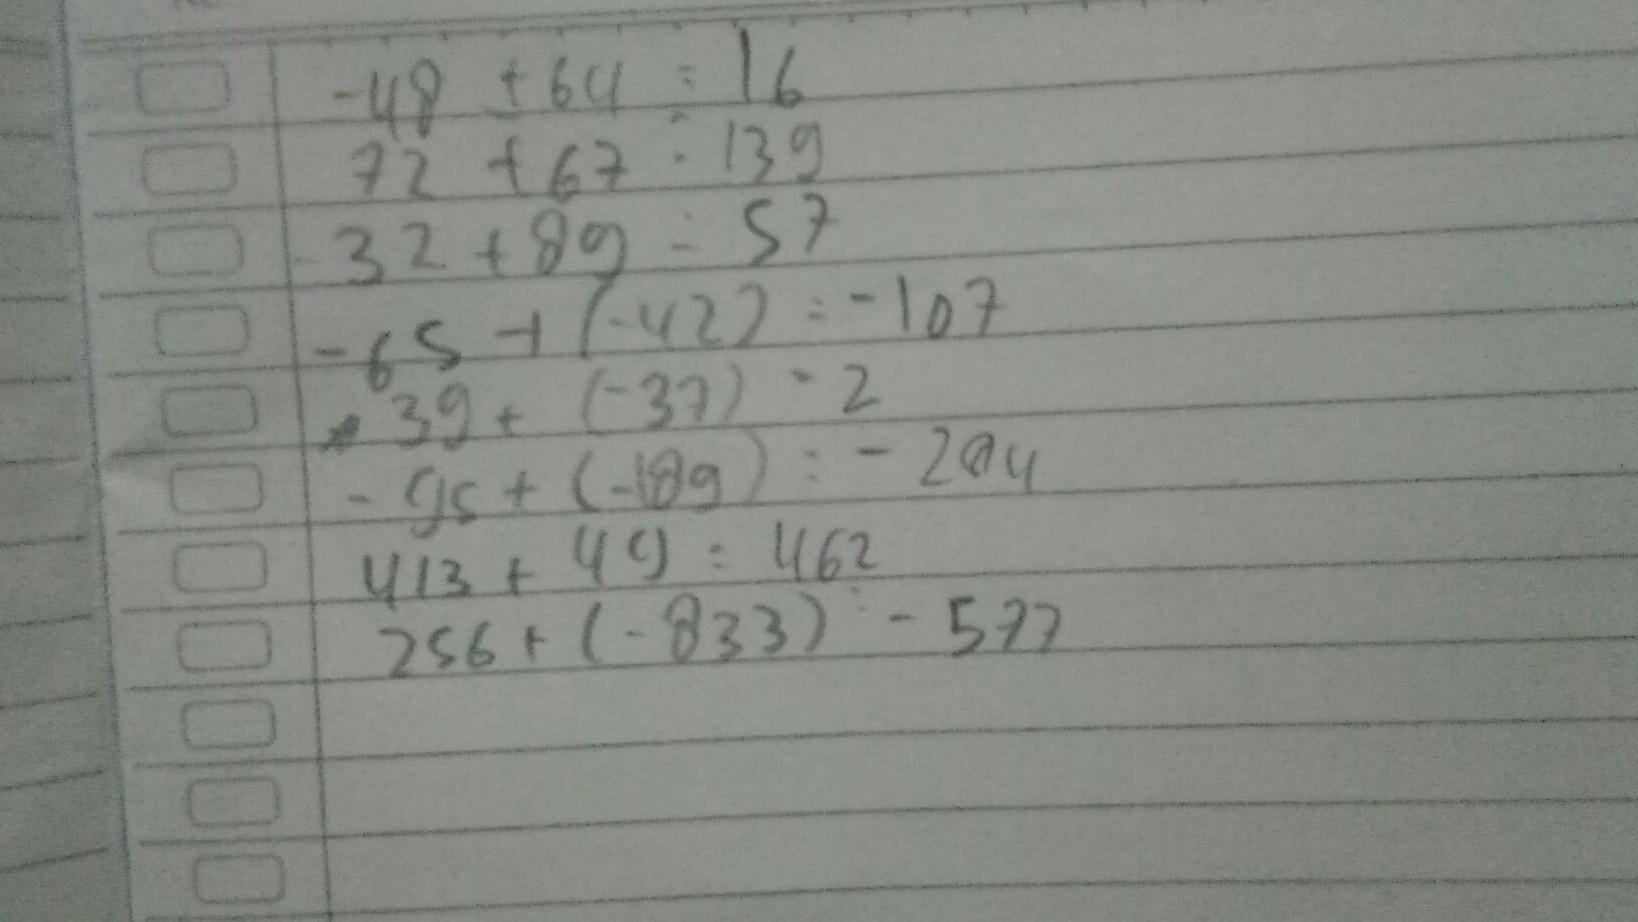 -48 + 64 = 16
72 + 67 = 139
-32 + 89 = 57
-65 + (-42) = -107
39 + (-37) = 2
-95 + (-189) = - 284
413 + 49 = 462
256 + (-833) = - 577